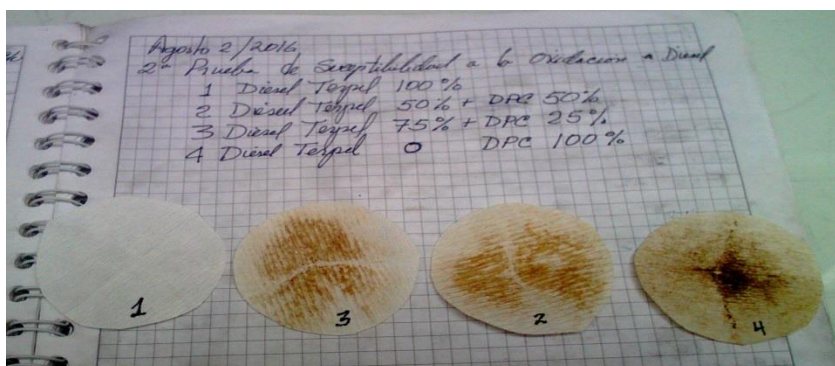 Agosto 2/2016
2da Prueba de Suceptibilidad a la Oxidacion a Diesel
1 Diesel Terpel 100%
2 Diesel Terpel 50% + DPC 50%
3 Diesel Terpel 75% + DPC 25%
4 Diesel Terpel 0 DPC 100%
1
3
2
4